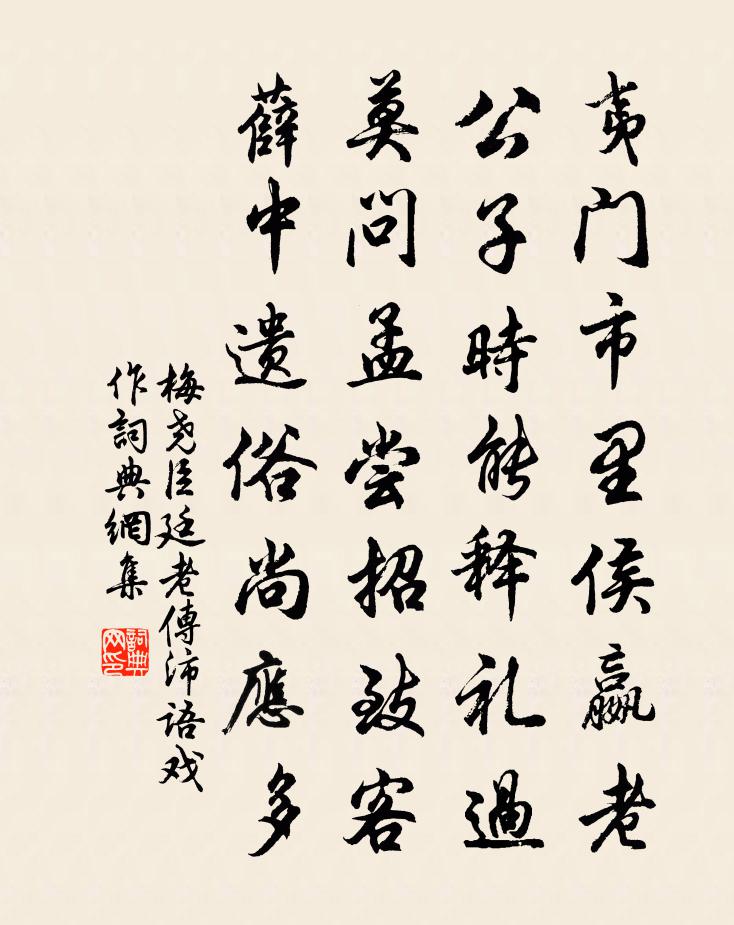 夷门市里侯嬴老
公子時能释礼過
莫问孟尝招致客
薛中遗俗尚應多
梅尧臣廷老傳沛语戏
作詞典網集
詞典网印